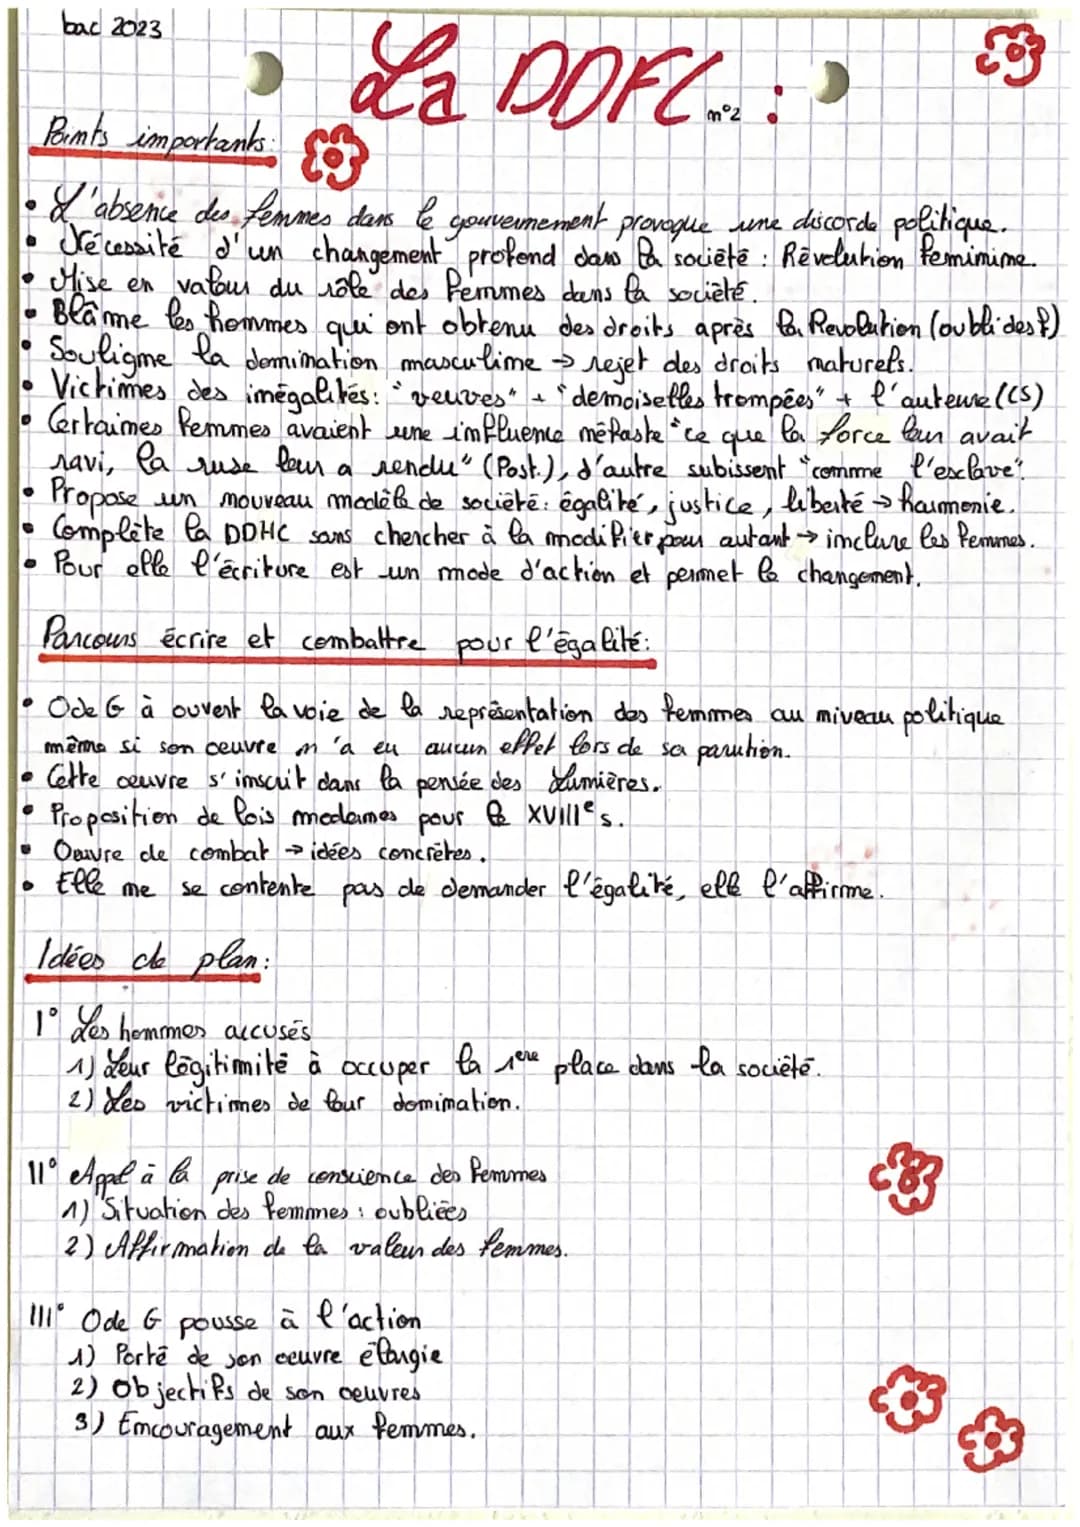 bac 2023
La DDFC n°2 :
Points importants:
• L'absence des femmes dans le gouvernement provoque une discorde politique.
• Nécessité d'un changement profond dans la société : Révolution feminine.
• Mise en valeur du rôle des femmes dans la société.
• Blâme les hommes qui ont obtenu des droits après la Revolution (oubli des f)
• Souligne la domination masculine → rejet des droits naturels.
• Victimes des inégalités: "veuves" + "demoiselles trompées" + l'auteure (CS)
• Certaines femmes avaient une influence néfaste "ce que la force leur avait
ravi, la ruse leur a rendu" (Post.), d'autre subissent "comme l'esclave".
• Propose un nouveau modèle de société: égalité, justice, liberté → harmonie.
• Complète la DDHC sans chercher à la modifier pour autant → inclure les femmes.
• Pour elle l'écriture est un mode d'action et permet le changement.
Parcours écrire et combattre pour l'égalité:
• Ode G à ouvert la voie de la représentation des femmes au niveau politique
même si son oeuvre n'a eu aucun effet lors de sa parution.
• Cette œuvre s'inscrit dans la pensée des Lumières.
• Proposition de lois modernes pour le XVIIIe s.
• Oeuvre de combat → idées concrètes.
• Elle ne se contente pas de demander l'égalité, elle l'affirme.
Idées de plan:
I° Les hommes accusés
1) Leur légitimité à occuper la 1ere place dans la société.
2) Les victimes de leur domination.
II° Appel à la prise de conscience des femmes
1) Situation des femmes : oubliées
2) Affirmation de la valeur des femmes.
III° Ode G pousse à l'action
1) Porté de son oeuvre élargie
2) Objectifs de son oeuvres
3) Encouragement aux femmes.